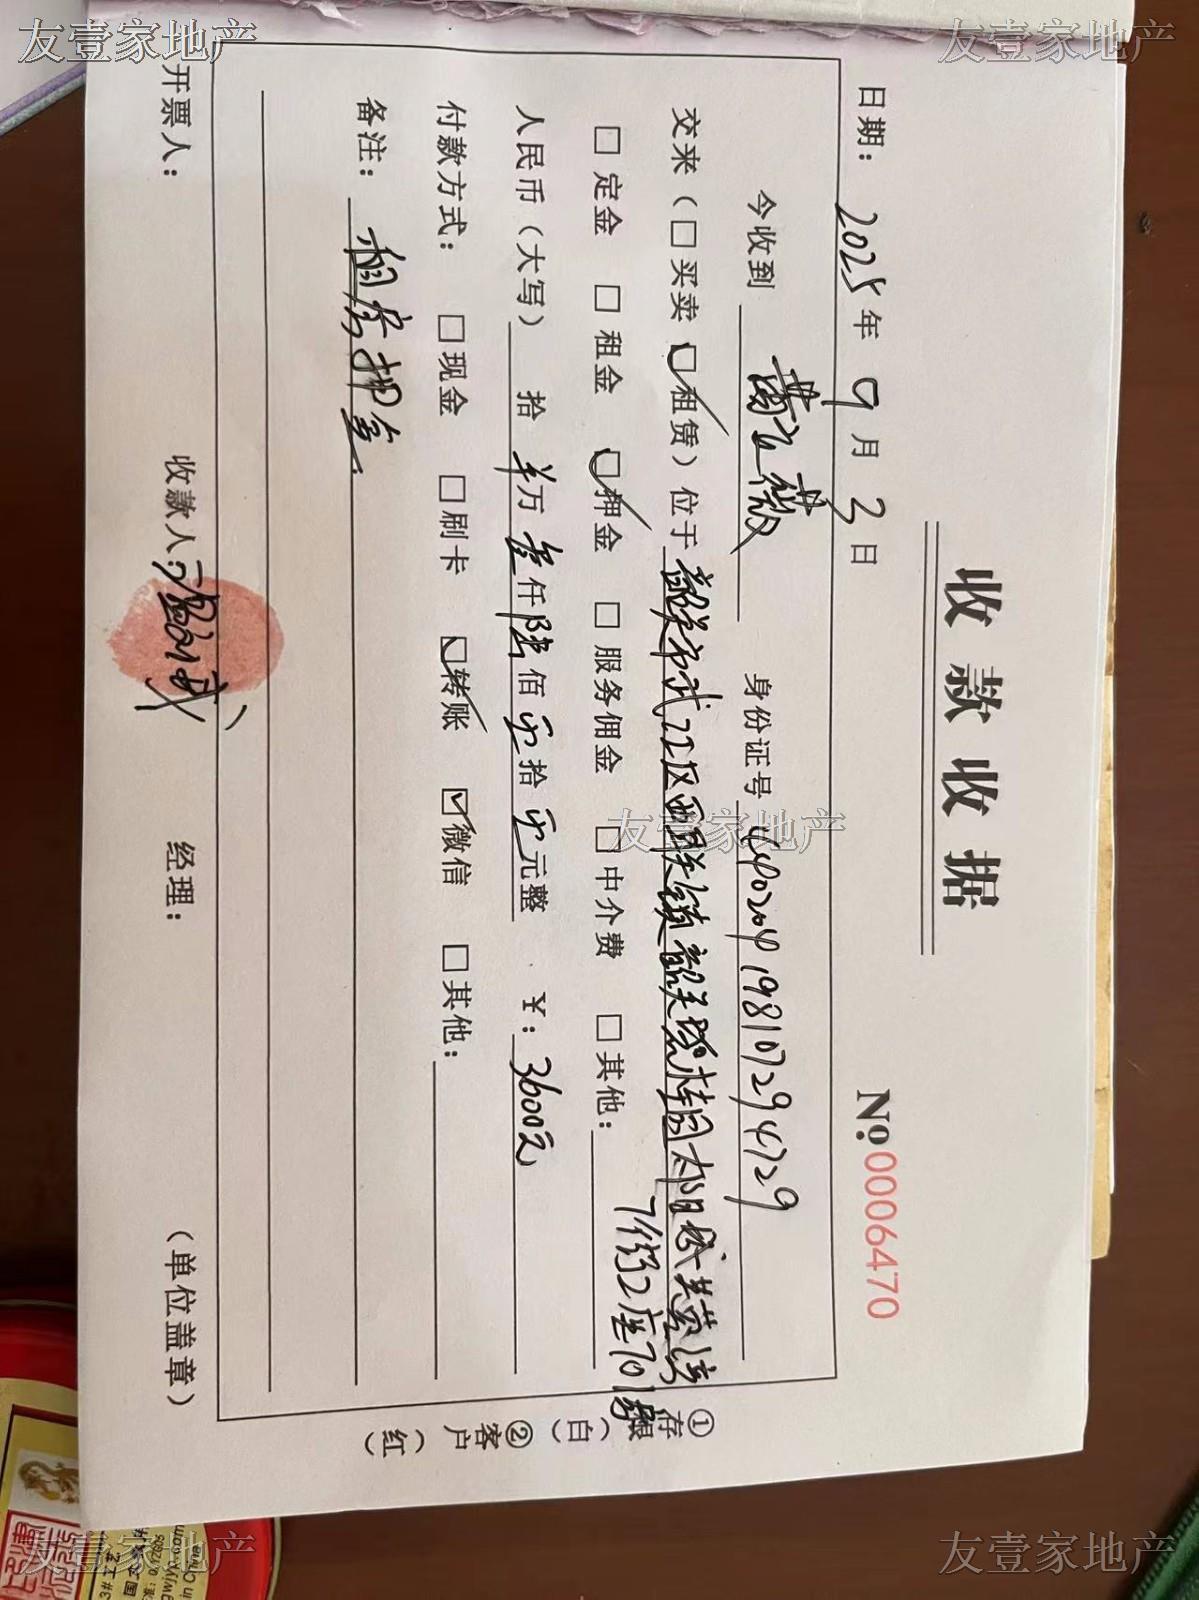 收款收据
No.0006470
日期：2025年9月2日
今收到 身份证号
交来（□买卖 ☑租赁）位于韶关市武江区西联镇韶关碧桂园太阳城
7街2座701
□定金 □租金 ☑押金 □服务佣金 □中介费 □其他：
人民币（大写） 拾 万叁仟陆佰零拾零元整 ￥：3600元
付款方式： □现金 □刷卡 ☑转账 ☑微信 □其他：
备注：租房押金
开票人： 收款人： 经理： （单位盖章）
①存根（白）②客户（红）
友壹家地产
友壹家地产
友壹家地产
友壹家地产
友壹家地产